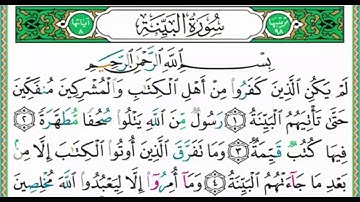 ترتيبها ٩٨ سُورَةُ الْبَيِّنَةِ آياتها ٨
بِسْمِ اللَّهِ الرَّحْمَٰنِ الرَّحِيمِ
لَمْ يَكُنِ الَّذِينَ كَفَرُوا مِنْ أَهْلِ الْكِتَابِ وَالْمُشْرِكِينَ مُنفَكِّينَ
حَتَّىٰ تَأْتِيَهُمُ الْبَيِّنَةُ ١ رَسُولٌ مِّنَ اللَّهِ يَتْلُوا صُحُفًا مُّطَهَّرَةً ٢
فِيهَا كُتُبٌ قَيِّمَةٌ ٣ وَمَا تَفَرَّقَ الَّذِينَ أُوتُوا الْكِتَابَ إِلَّا مِنۢ
بَعْدِ مَا جَاءَتْهُمُ الْبَيِّنَةُ ٤ وَمَا أُمِرُوا إِلَّا لِيَعْبُدُوا اللَّهَ مُخْلِصِينَ